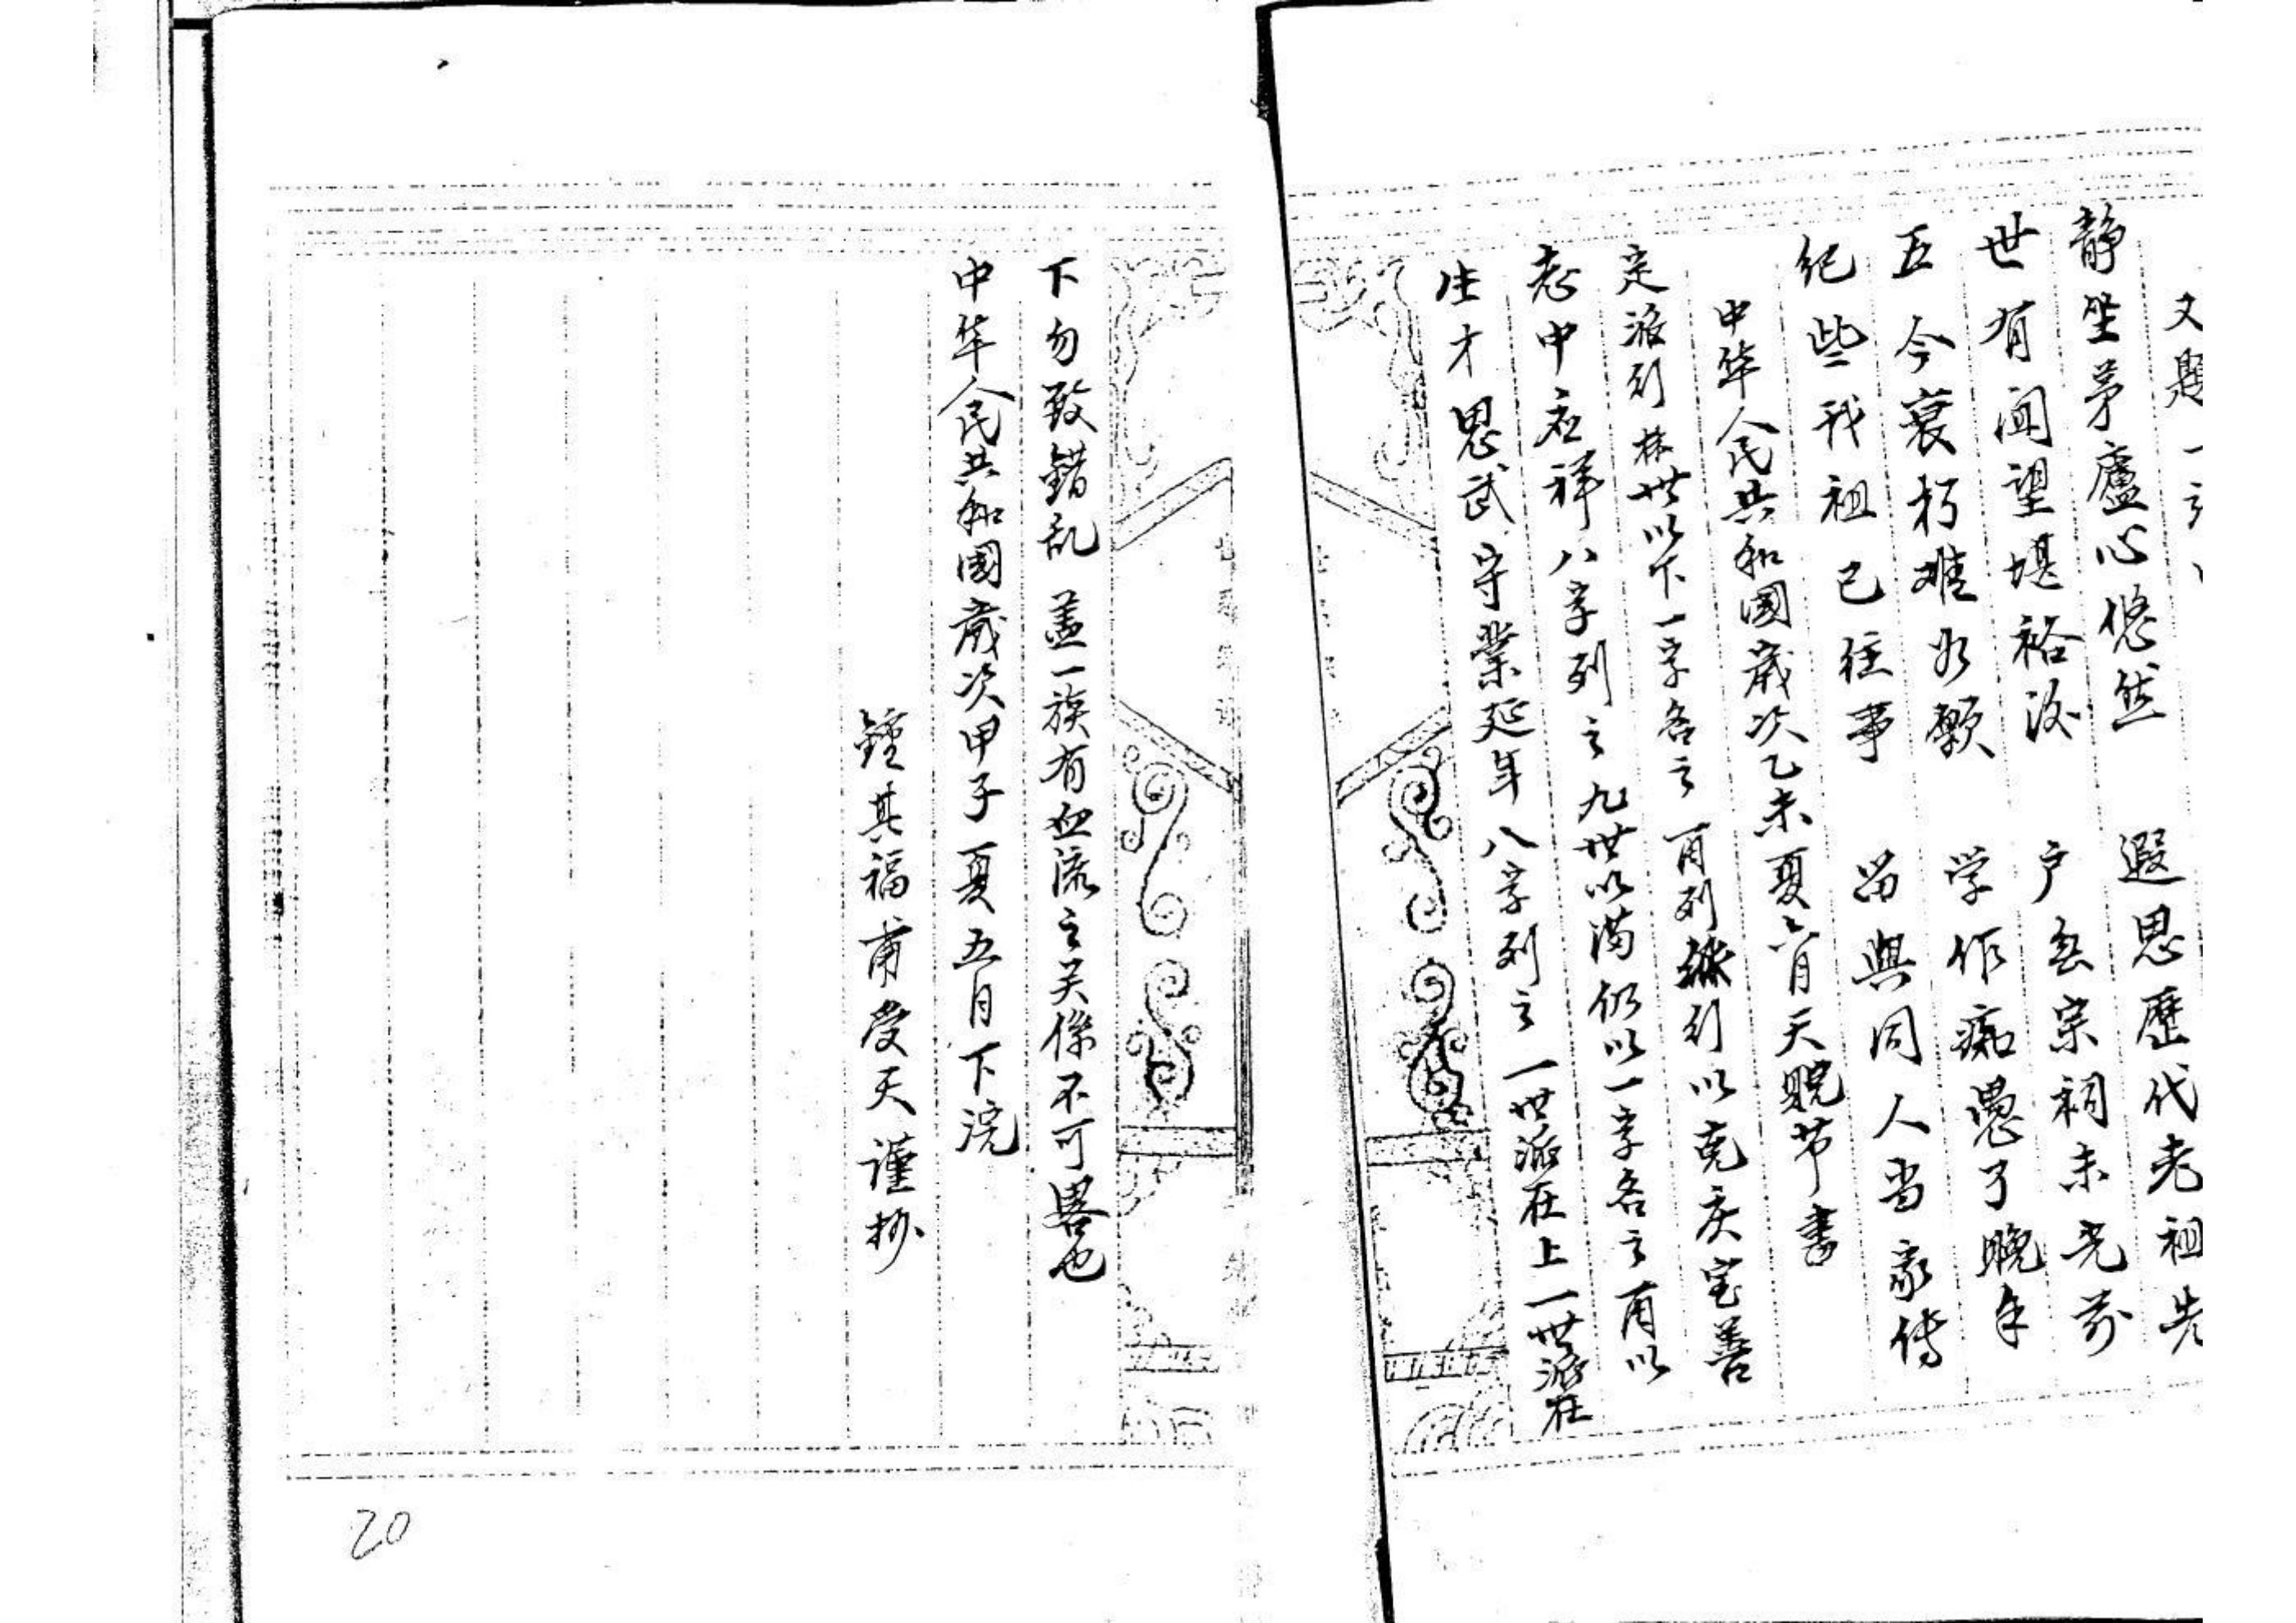 又題一
静坐茅廬心悠然 遐思歷代老祖先
世有闻望堪裕後 户無宗祠未光前
五今衰朽难如願 学作痴愚了晚年
纪些我祖已往事 留與同人当家传
中华人民共和國歲次乙未夏六月天贶节书
定派列 林世以下一字名之 再列 列以克庆宝善
志中应祥八字列之九世以满仍以一字名之再以
生才思武守業延年八字列之一世派在上一世派在
下勿致錯乱 盖一族有血流之关係不可畧也
中华人民共和國歲次甲子夏五月下浣
鐘其福甫受天谨抄
20